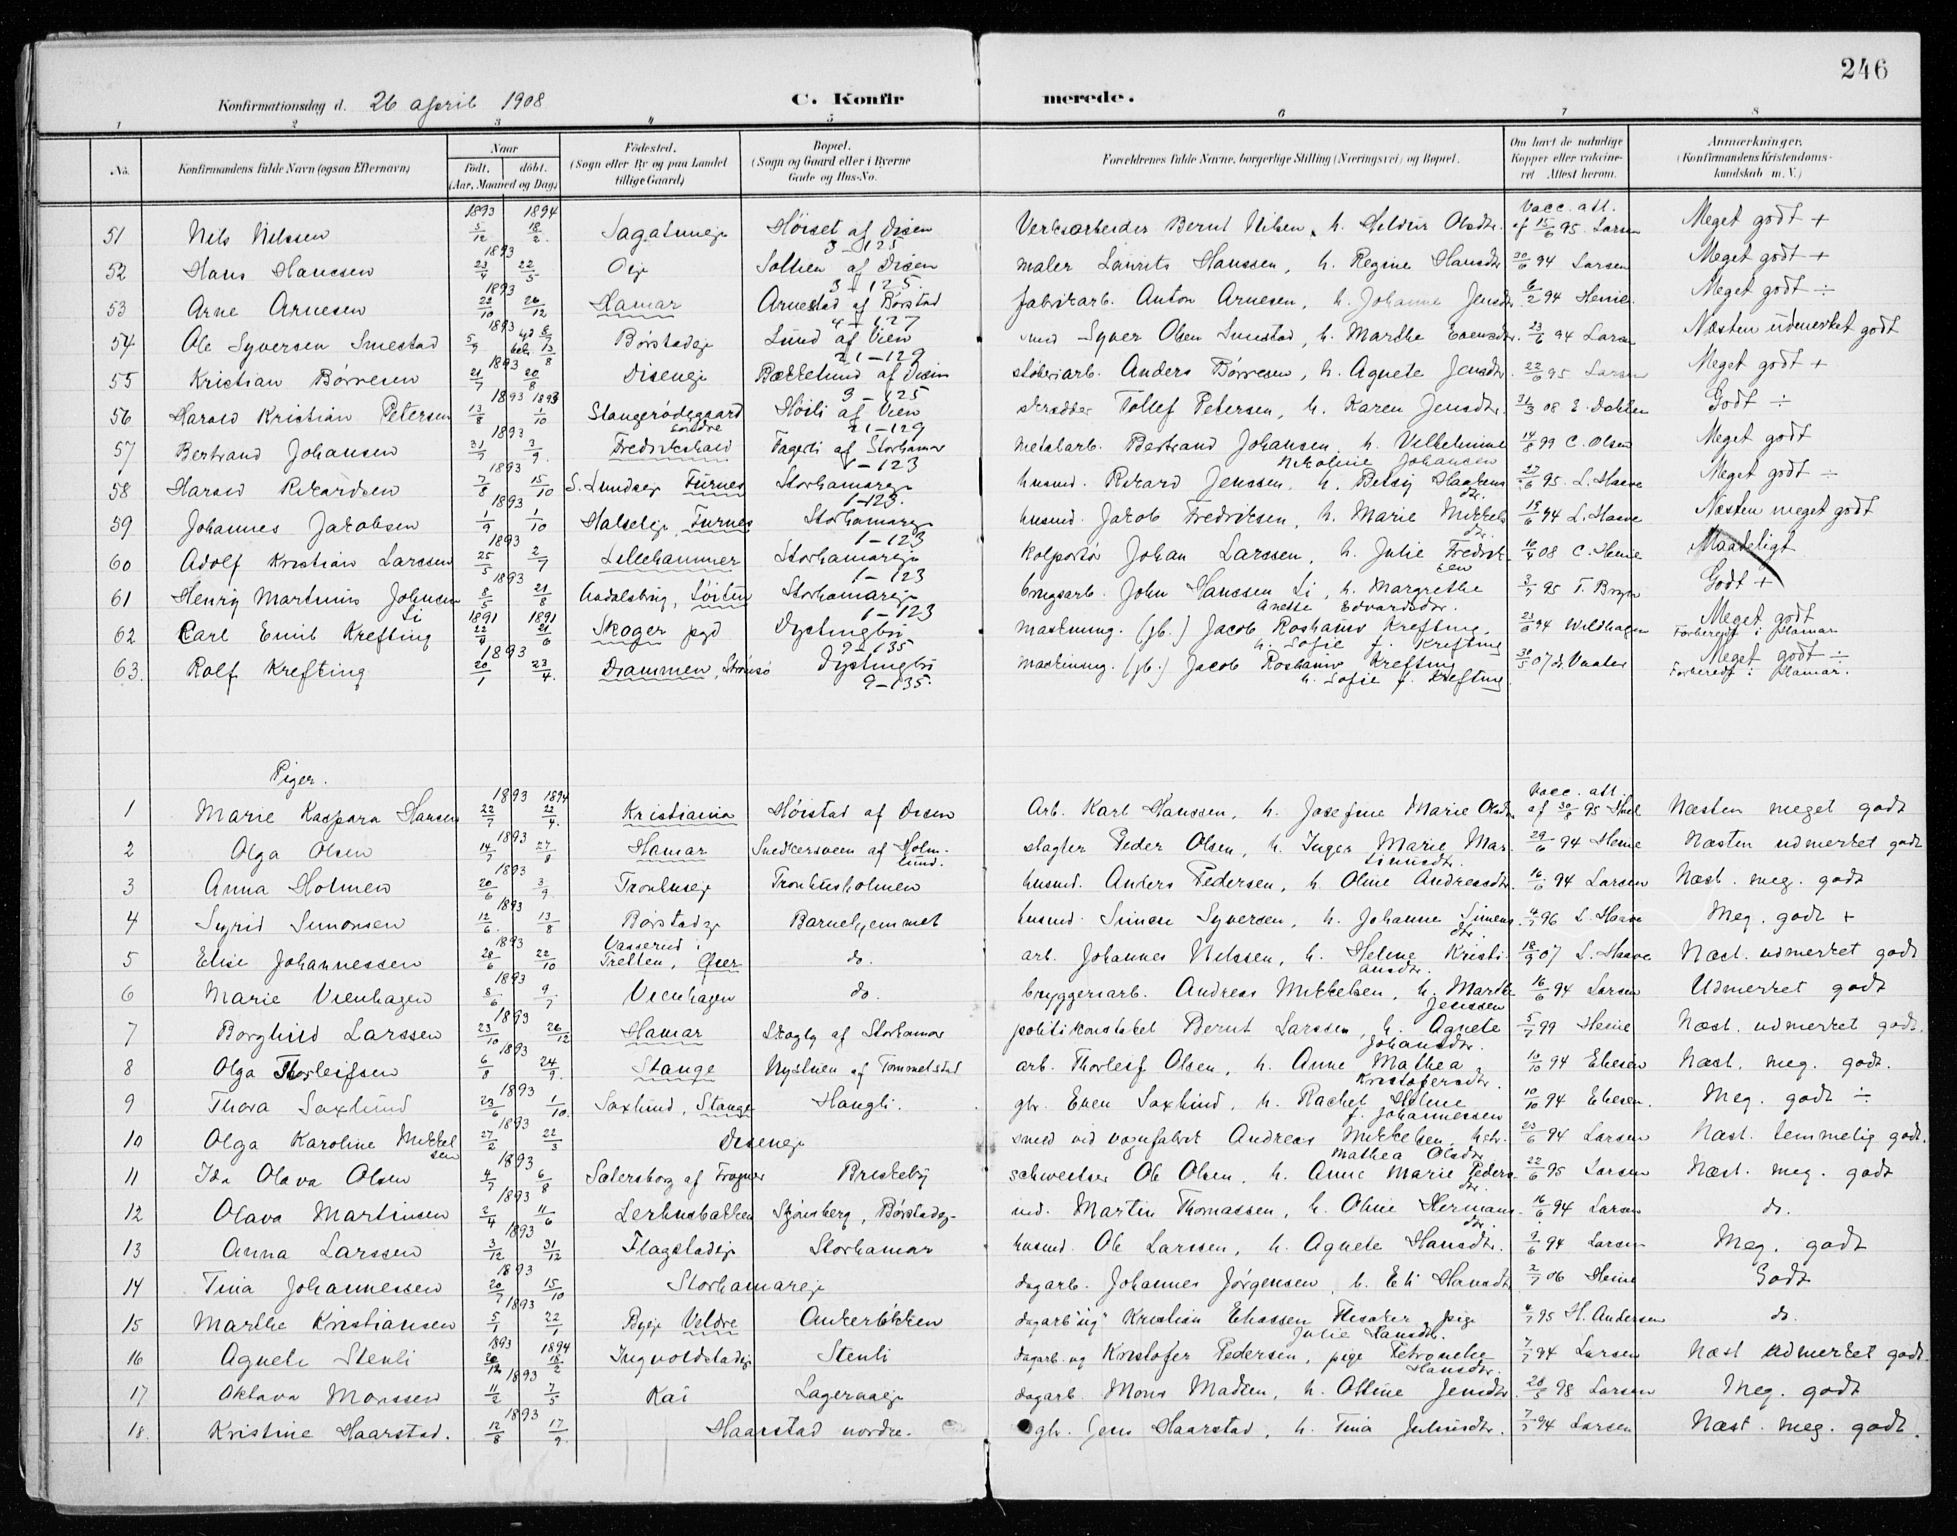 246
Konfirmationsdag d. 26 april 1908 C. Konfirmerede.
1 2 3 4 5 6 7 8
No. Konfirmandens fulde Navn (ogsaa Efternavn) Naar født. døbt. (Aar, Maaned og Dag) Fødested. (Sogn eller By og paa Landet tillige Gaard) Bopæl. (Sogn og Gaard eller i Byerne Gade og Hus-No. Forældrenes fulde Navne, borgerlige Stilling (Næringsvei) og Bopæl. Om havt de naturlige Kopper eller vaksineret Attest herom. Anmærkninger. (Konfirmandens Kristendomskundskab m. V.)
51 Nels Nilssen 1893 5/12 1894 18/2. Sagatuneje Høiset af Disen 3-125 Verksarbeider Bernt Nilsen, h. Heldur Olsdtr. Vacc. att. af 15/6 95. Larsen Meget godt +
52 Hans Hanssen 1893 23/4 22/5 Eje Solhien af Disen 3-125. maler Laurits Hanssen, h. Regine Hansdtr 30/6 94 Larsen Meget godt +
53 Arne Arnesen 1893 22/10 26/12 Hamar Arnestad af Børstad 4-127 fabrikarb. Anton Arnesen, h. Johanne Jensdtr 6/2 94 Heme Meget godt ÷
54 Ole Syversen Smestad 1893 5/7 13/8 Børstadeje Lund af Vien 21-129 smed Syver Olsen Smestad, h. Marthe Evensdtr. 23/6 94 Larsen Næsten udmerket godt
55 Kristian Børresen 1893 21/7 20/8 Diseneje Bækkelund af Disen 3-125 støberiarb. Anders Børresen, h. Agnete Jensdtr. 22/6 95 Larsen Meget godt +
56 Harald Kristian Petersen 1893 13/8 1893 1/10 Stangerødegaard søndre Høili af Vien 21-129 skrædder Tollef Petersen, h. Karen Jensdtr. 31/3 08 E. Dahlen Godt ÷
57 Bertrand Johansen 1893 31/7 3/9. Fredrikshald Fagerli af Storhamar 1-123 metalarb. Bertrand Johansen, h. Vilhelmine Nikoline Johansen 14/8 99 C. Olsen Meget godt
58 Harald Rikardsen 1893 7/8 15/10 S. Lundseje Furnes Storhamareje 1-123. husmd. Rikard Jenssen, h. Betsy Haakens dtr. 27/6 95. L. Haave Meget godt ÷
59 Johannes Jakobsen 1893 1/9 1/10 Halseleje, Furnes Storhamareje 1-123 husmd. Jakob Fredriksen, h. Marie Mikkels dtr. 15/6 94 L. Haave Næsten meget godt
60 Adolf Kristian Larssen 1893 25/5 2/7 Lillehammer Storhamareje 1-123 kolportør Johan Larssen, h. Julie Fredriksen 10/4 08 C. Heme Maadeligt
61 Henry Martinius Johnsen Li 1893 8/5 21/8 Aadalsbrug, Løiten Storhamareje 1-123 brugsarb. John Hanssen Li, h. Margrethe Anette Edvardsdtr. 3/7 95 T. Bryn Godt +
62 Carl Emil Krefting 1891 22/4 1891 21/6 Skoger pgd Dystingbo 9-135 maskining. (gb.) Jacob Roshauw Krefting, h. Sofie f. Krefting 23/6 94 Wildhagen Meget godt Forberedt i Hamar
63. Rolf Krefting 1893 20/1 23/4. Drammen, Strømsø Dystingbo 9-135. maskining. (gb.) Jacob Roshauw Krefting h. Sofie f. Krefting 30/5 07 Meget godt ÷ Forberedt i Hamar.
Piger.
1 Marie Kaspara Hansen 1893 22/7 1894 22/4. Kristiania Høistad af Disen Arb. Karl Hanssen, h. Josefine Marie Olsdtr Vacc. att. af 30/8 95 Næsten meget godt
2 Olga Olsen 1893 14/7 27/8 Hamar Snedkersveen af Holmlund. slagter Peder Olsen, h. Inger Marie Mar- 29/6 94 Heme Næsten udmerket godt
3 Anna Holmen 1893 20/6 3/9. Tronhuseje Tronhusholmen husmd. Anders Pedersen, h. Oline Andreasdtr. 16/6 94 Larsen Næst. meg. godt
4 Sigrid Simonsen 1893 12/6. 13/8 Børstadeje Barnehjemmet husmd. Simen Syversen, h. Johanne Simens dtr. 4/7 96 L. Haave Meg. godt +
5 Elise Johannessen 1893 28/6 22/10 Vasserud i Tretten, Øier do. arb. Johannes Nilssen, h. Helene Kristiansdtr. 18/9 07 L. Haave Næst. udmerket godt
6 Marie Vienhagen 1893 8/6 9/7 Vienhagen do. bryggeriarb. Andreas Mikkelsen, h. Marthe Jenssen 16/6 94 Larsen Udmerket godt
7 Borghild Larssen 1893 23/10 26/12 Hamar Skogly af Storhamar politikonstabel Bernt Larssen, h. Agnete Johansdtr. 5/7 99 Heme Næst. udmerket godt.
8 Olga Thorleifsen 1893 6/8 24/9. Stange Nystuen af Tommelstad arb. Thorleif Olsen, h. Anne Mathea Kristofersdtr. 10/10 94 Ebesen Næst. meg. godt.
9 Thora Saxlund 1893 23/6 1/10. Saxlund, Stange Haugli. gbr. Even Saxlund, h. Rachel Helene f. Johannessen 10/10 94 Ebesen. Meg. godt ÷
10 Olga Karoline Mikkelsen 1893 27/2 22/3 Diseneje smed vid vognfabrik Andreas Mikkelsen, hstr. Mathea Olsdtr 23/6 94 Larsen Næst. temmelig godt.
11 Ida Olava Olsen 1893 4/7 6/8 Sætersborg af Frogner Briskeby schweitser Ole Olsen, h. Anne Marie Peders dtr. 22/6 95 Larsen Næst. meg. godt
12 Olava Martinsen 1893 2/4 11/6 Lerhusbakken Skjønsberg, Børstadeje md. Martin Thomassen, h. Oline Hermans- dtr. 16/6 94 Larsen do.
13 Anna Larssen 1893 3/12 31/12 Flagstadeje Storhamar husmd. Ole Larssen, h. Agnete Hansdtr. 9/6 94 Larsen Meg. godt
14 Tina Johannessen 1893 20/7 15/10 Storhamareje dagarb. Johannes Jørgensen, h. Eli Hansdtr 2/7 06 Heme Godt
15 Marthe Kristiansen 1893 5/1 22/1 Byeje Veldre Ankerløkken dagarb. ug. Kristian Eliassen Flesaker, pige Julie Hansdtr. 4/7 95 H. Andersen do.
16 Agnete Stenli 1893 20/12 1894 18/2 Ingvoldstadeje Stenli dagarb. ug Kristofer Pedersen, pige Petronelle Hansdtr. 7/7 94 Larsen Næst udmerket godt.
17 Oktava Monssen 1893 11/2 7/5 Kai Lagernaeje dagarb. Mons Madsen, h. Olline Jensdtr. 20/5 98 Larsen Meg. godt
18. Kristine Haarstad. 1893 12/8 17/9. Haarstad nordre. gbr. Jens Haarstad, h. Tina Juliusdtr. 7/7 94 Larsen Næst. meg. godt.